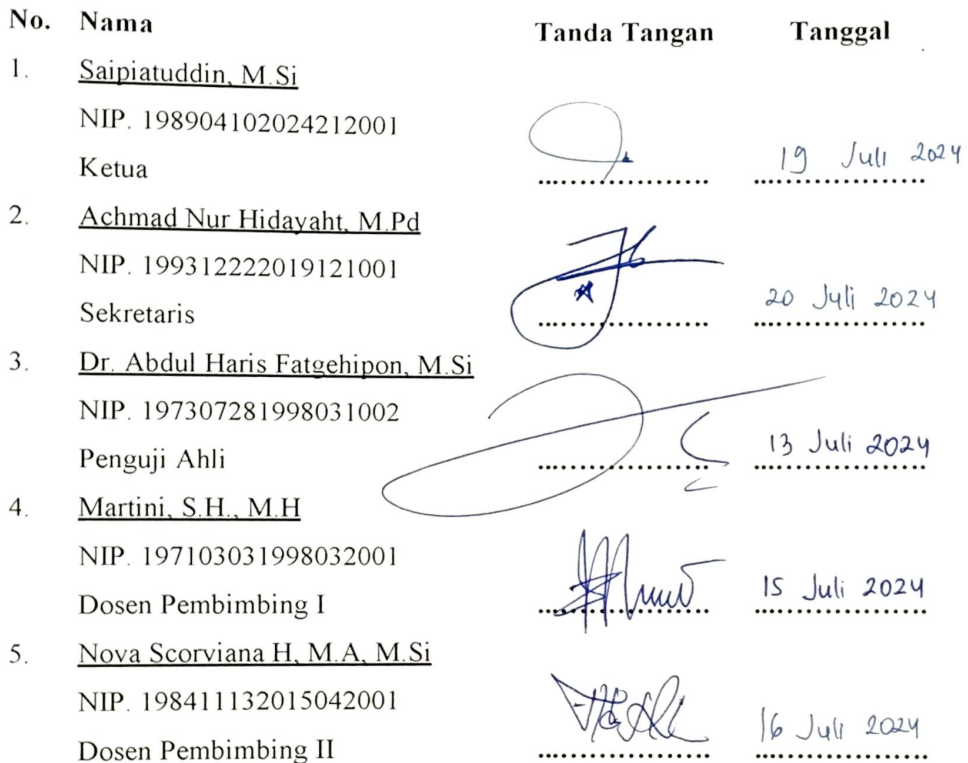 No. Nama Tanda Tangan Tanggal
1. Saipiatuddin, M.Si
NIP. 198904102024212001
Ketua .................... 19 Juli 2024
2. Achmad Nur Hidayaht, M.Pd
NIP. 199312222019121001
Sekretaris .................... 20 Juli 2024
3. Dr. Abdul Haris Fatgehipon, M.Si
NIP. 197307281998031002
Penguji Ahli .................... 13 Juli 2024
4. Martini, S.H., M.H
NIP. 197103031998032001
Dosen Pembimbing I .................... 15 Juli 2024
5. Nova Scorviana H, M.A, M.Si
NIP. 198411132015042001
Dosen Pembimbing II .................... 16 Juli 2024